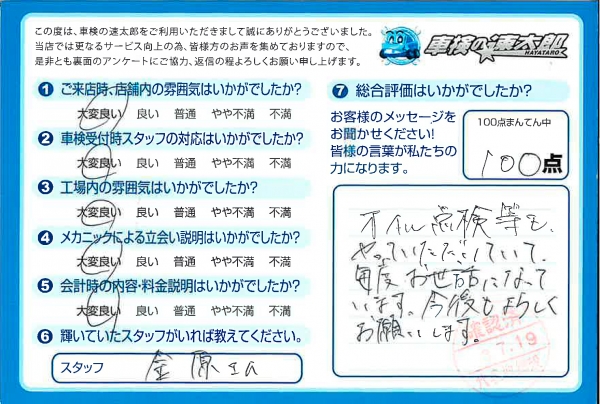 この度は、車検の速太郎をご利用いただきまして誠にありがとうございました。
当店では更なるサービス向上の為、皆様方のお声を集めておりますので、
是非とも裏面のアンケートにご協力、返信の程よろしくお願い申し上げます。
車検の速太郎
HAYATARO
1 ご来店時、店舗内の雰囲気はいかがでしたか?
大変良い 良い 普通 やや不満 不満
2 車検受付時スタッフの対応はいかがでしたか?
大変良い 良い 普通 やや不満 不満
3 工場内の雰囲気はいかがでしたか?
大変良い 良い 普通 やや不満 不満
4 メカニックによる立会い説明はいかがでしたか?
大変良い 良い 普通 やや不満 不満
5 会計時の内容・料金説明はいかがでしたか?
大変良い 良い 普通 やや不満 不満
6 輝いていたスタッフがいれば教えてください。
スタッフ 金原さん
7 総合評価はいかがでしたか?
お客様のメッセージを
お聞かせください!
皆様の言葉が私たちの
力になります。
100点まんてん中
100点
オイル点検等も、
やっていただいていて、
毎度お世話になって
います。今後もよろしく
お願いします。
確認済
7.19